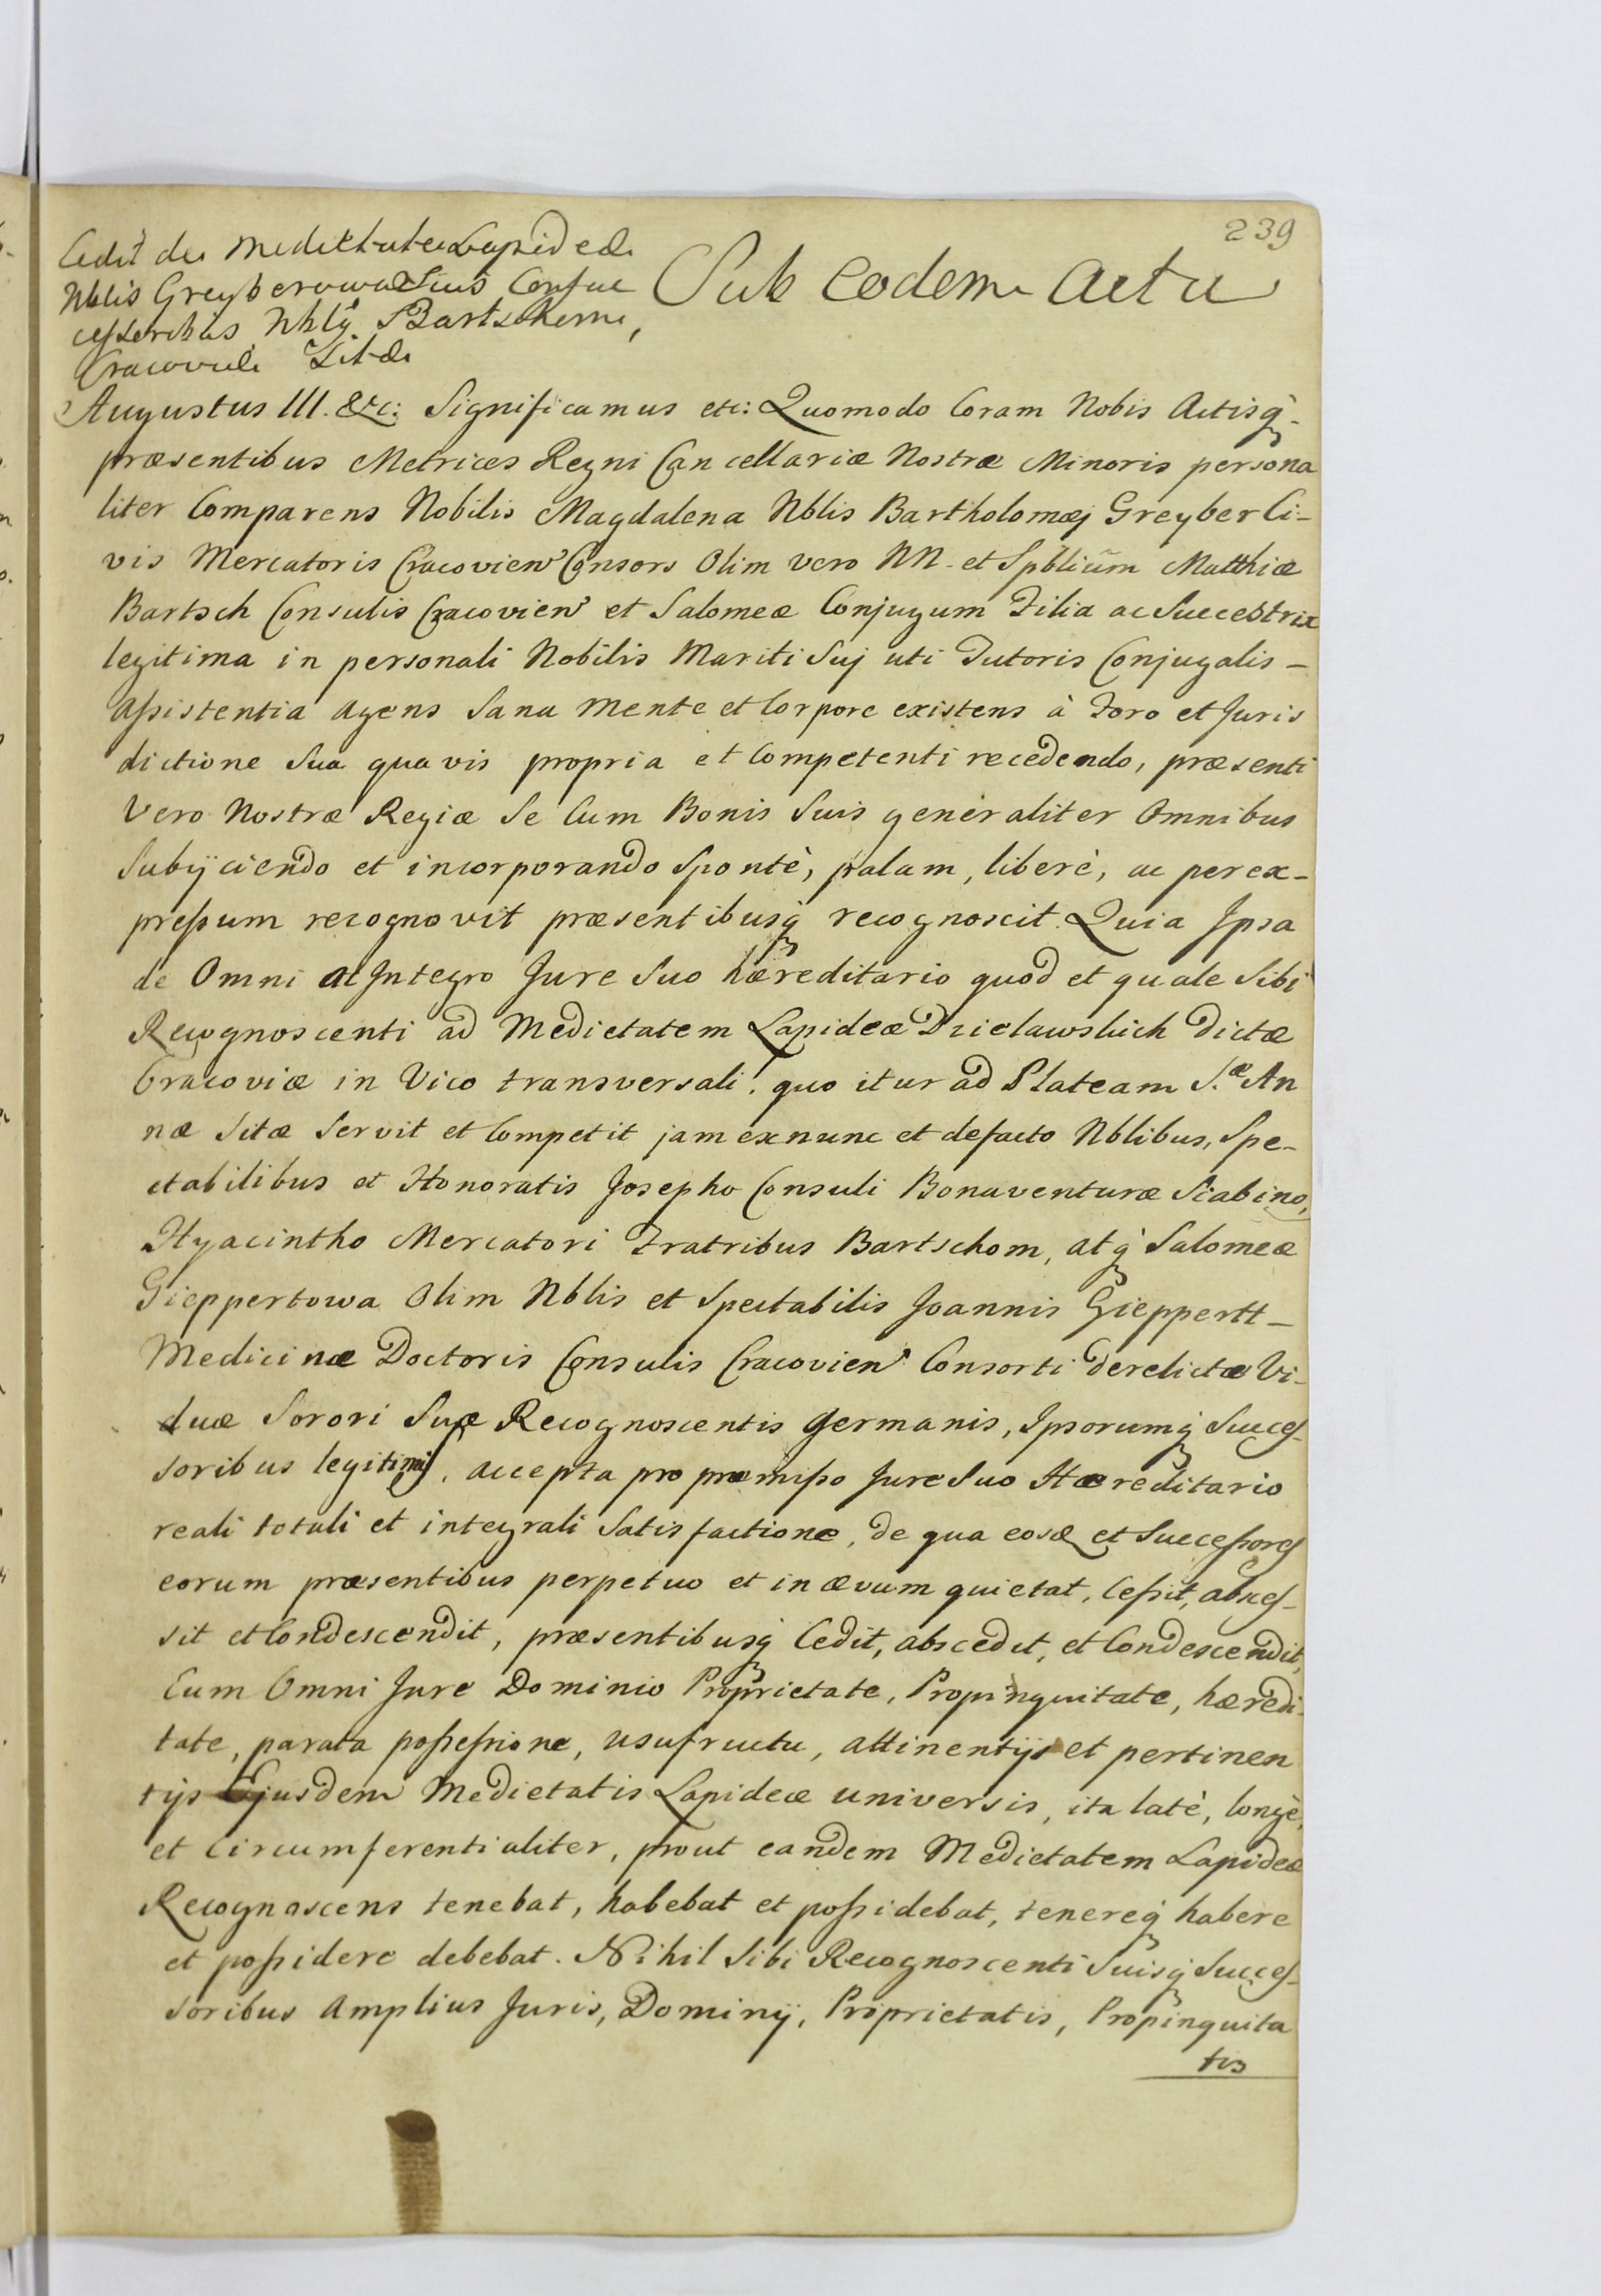 239
Cedit de Medietate Lapideæ
Nblis Greyberowa Suis Consuc
cessoribus Nbly Bartschom,
Cracoviæ Sitæ
Sub Eodem Actu
Augustus III. &c: Significamus etc: Quomodo Coram Nobis Actisq̃-
præsentibus Metrices Regni Cancellariæ Nostræ Minoris persona
liter Comparens Nobilis Magdalena Nblis Bartholomæj Greyber Ci-
vis Mercatoris Cracovien Consors Olim vero NN. et Spblium Matthiæ
Bartsch Consulis Cracovien et Salomeæ Conjugum Filia ac Succestrix
legitima in personali Nobilis Mariti Suj uti Tutoris Conjugalis -
aßistentia agens Sana Mente et Corpore existens à Foro et Juris
dictione Sua quavis propria et Competenti recedendo, præsenti
Vero Nostræ Regiæ Se Cum Bonis Suis generaliter Omnibus
Subijciendo et incorporando Spontè, palam, liberè, ac per ex-
preßum recognovit præsentibusq̃ recognoscit. Quia Ipsa
de Omni et Integro Jure Suo hæreditario quod et quale Sibi
Recognoscenti ad Medietatem Lapideæ Dzielawskich dictæ
Cracoviæ in Vico transversali, quo itur ad Plateam S.æ An
næ Sitæ Servit et Competit jam ex nunc et defacto Nblibus, Spe-
ctabilibus et Honoratis Josepho Consuli Bonaventuræ Scabino,
Hyacintho Mercatori Fratribus Bartschom, atq̃ Salomeæ
Gieppertowa Olim Nblis et Spectabilis Joannis Gieppertt -
Medicinæ Doctoris Consulis Cracovien Consorti derelictæ Vi-
duæ Sorori Suæ Recognoscentis Germanis, Ipsorumq̃ Succes-
soribus legitimis, accepta pro præmißo Jure Suo Hæreditario
reali totali et integrali Satisfactione, de qua eosd et Succeßores
eorum præsentibus perpetuo et in ævum quietat, Ceßit, absces-
sit et Condescendit, præsentibusq̃ Cedit, abscedit, et Condescendit,
Cum Omni Jure Dominio Proprietate, Propinquitate, hæredi-
tate, parata poßeßione, usufructu, attinentijs et pertinen
tijs Ejusdem Medietatis Lapideæ universis, ita latè, longè,
et circumferentialiter, prout eandem Medietatem Lapideæ
Recognoscens tenebat, habebat et poßidebat, tenereq̃ habere
et poßidere debebat. Nihil Sibi Recognoscenti Suisq̃ Succes-
soribus Amplius Juris, Dominij, Proprietatis, Propinquita
tis